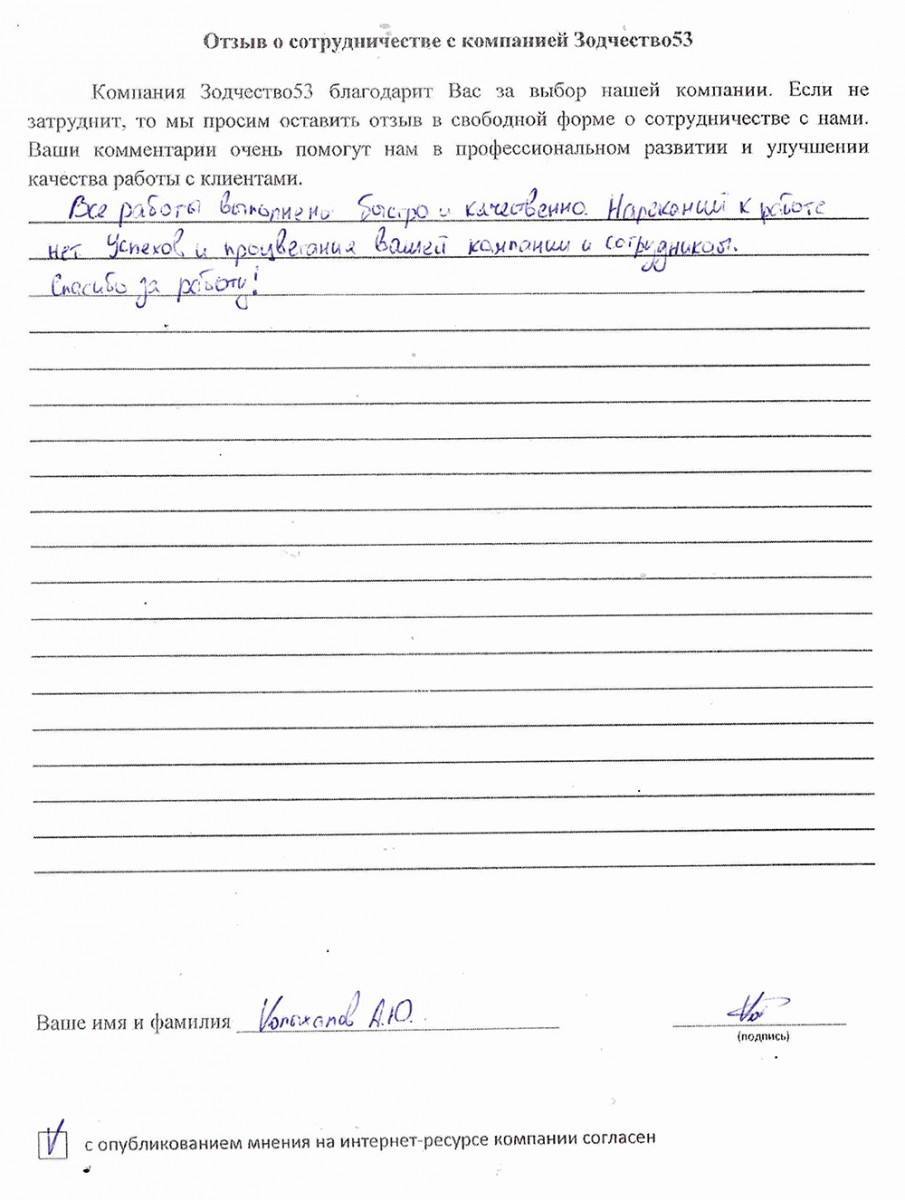 Отзыв о сотрудничестве с компанией Зодчество53
Компания Зодчество53 благодарит Вас за выбор нашей компании. Если не
затруднит, то мы просим оставить отзыв в свободной форме о сотрудничестве с нами.
Ваши комментарии очень помогут нам в профессиональном развитии и улучшении
качества работы с клиентами.
Все работы выполнено быстро и качественно. Нареканий к работе
нет Успехов и процветания вашей компании и сотрудникам.
Спасибо за работу!
Ваше имя и фамилия А.Ю.
(подпись)
с опубликованием мнения на интернет-ресурсе компании согласен